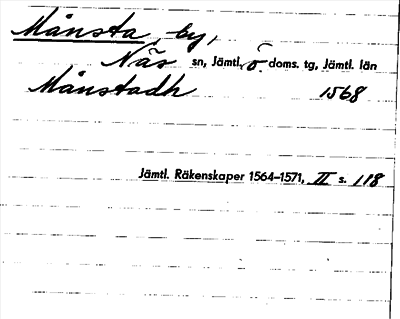 Månsta, by,
Näs sn, Jämtl. ö. doms. tg, Jämtl. län
Månstadh 1568
Jämtl. Räkenskaper 1564–1571, II s. 118